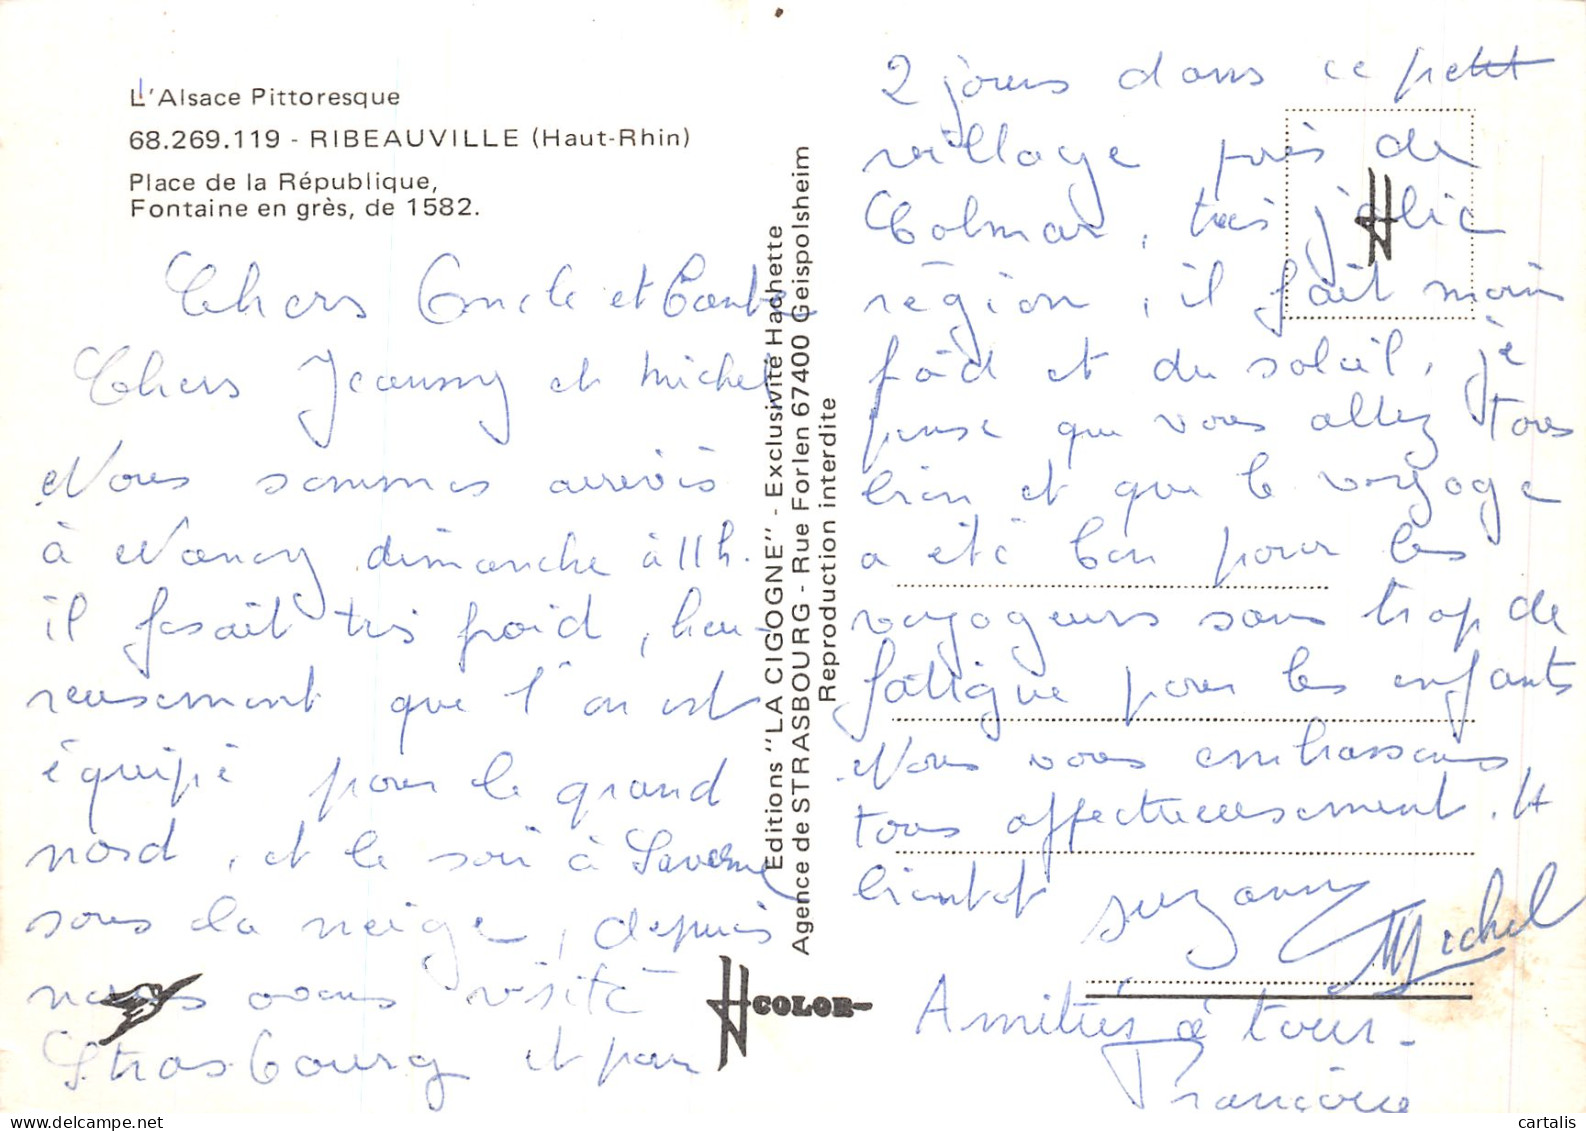 L'Alsace Pittoresque
68.269.119 - RIBEAUVILLE (Haut-Rhin)
Place de la République,
Fontaine en grès, de 1582.
Chers Oncle et Tante
Chers Jeanny et Michel
Nous sommes arrivés
à Nancy dimanche à 11h.
il fesait très froid, heu-
reusement que l'on est
équipé pour le grand
nord, et le soir à Saverne
sous la neige, depuis
nous avons visité
Strasbourg et pour
Editions "LA CIGOGNE" - Exclusivité Hachette
Agence de STRASBOURG - Rue Forlen 67400 Geispolsheim
Reproduction interdite
COLOR
2 jours dans ce petit
village près de
Colmar, très jolie
région, il fait moins
froid et du soleil, je
pense que vous allez tous
bien et que le voyage
a été bon pour les
voyageurs sans trop de
fatigue pour les enfants
Nous vous embrassons
tous affectueusement. A
bientot Suzanne Michel
Amitiés à tous.
Françoise
cartalis